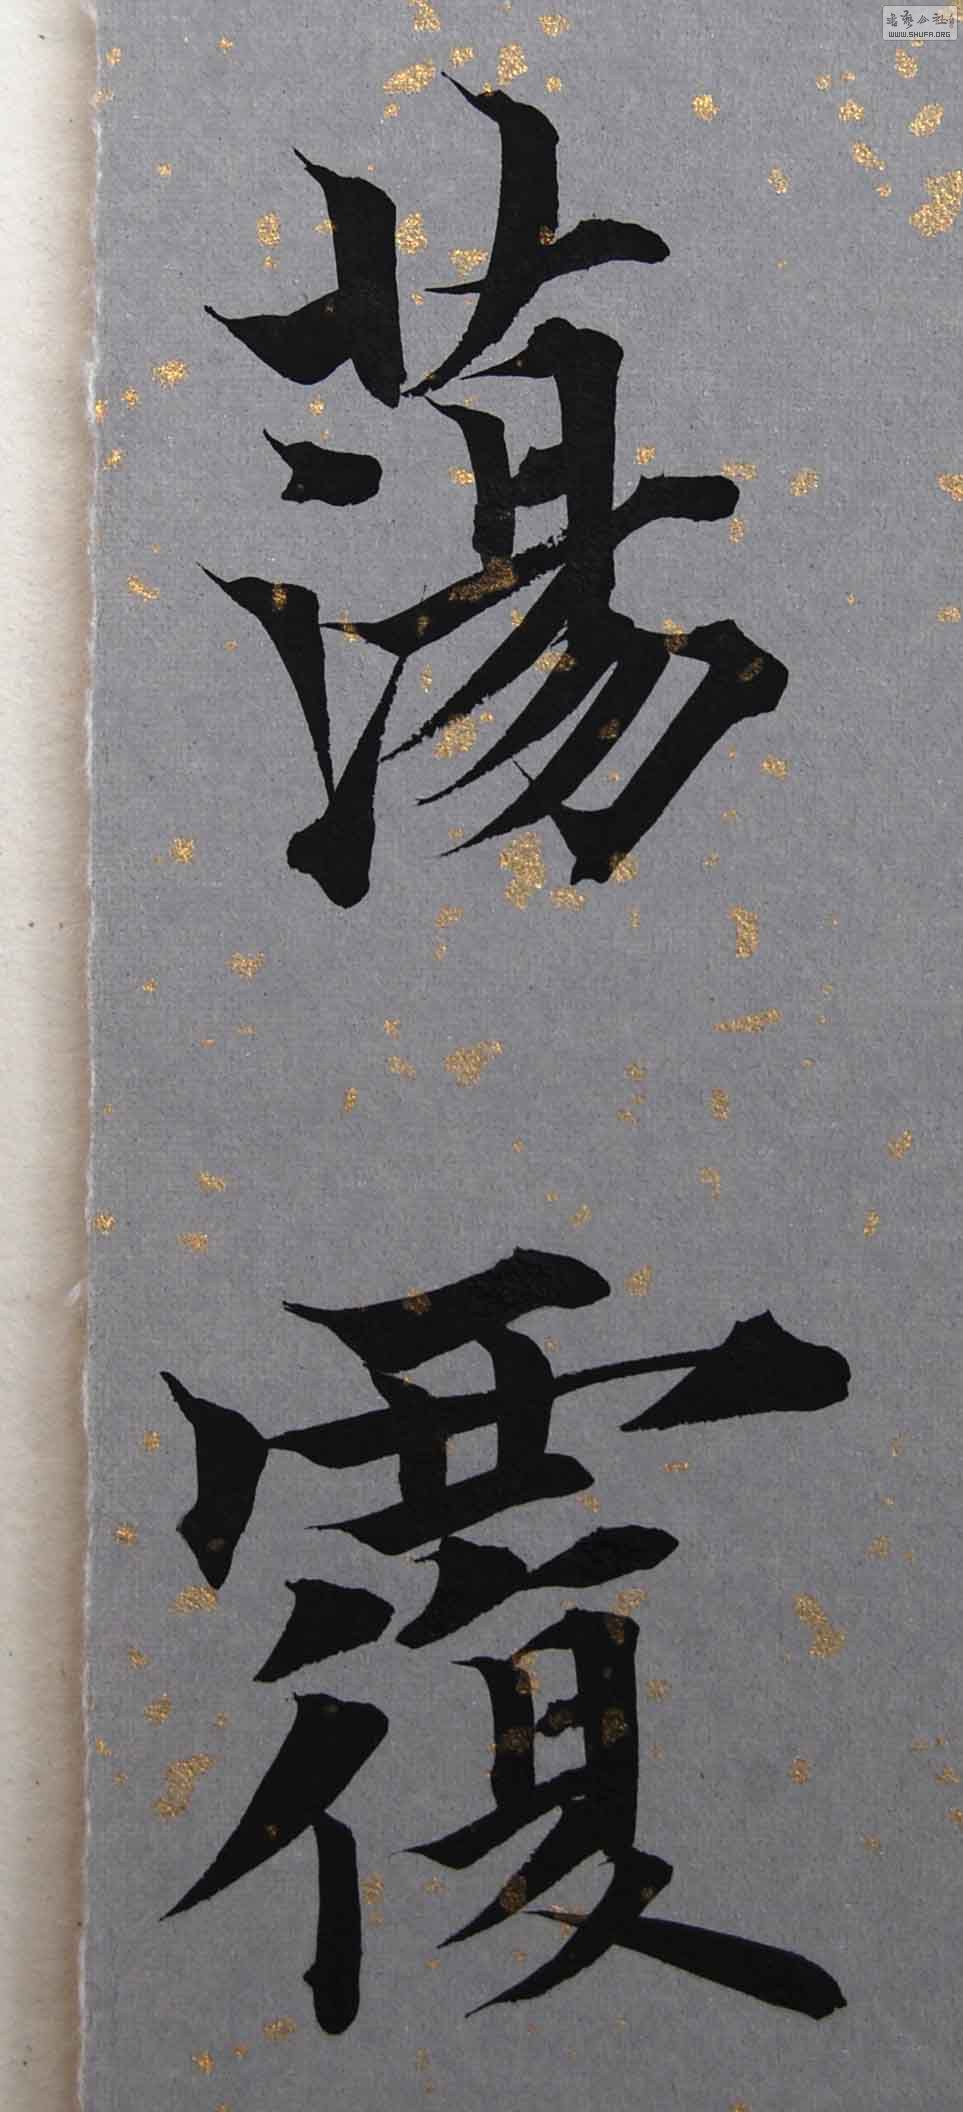 蕩
覆
书艺公社
WWW.SHUFA.ORG